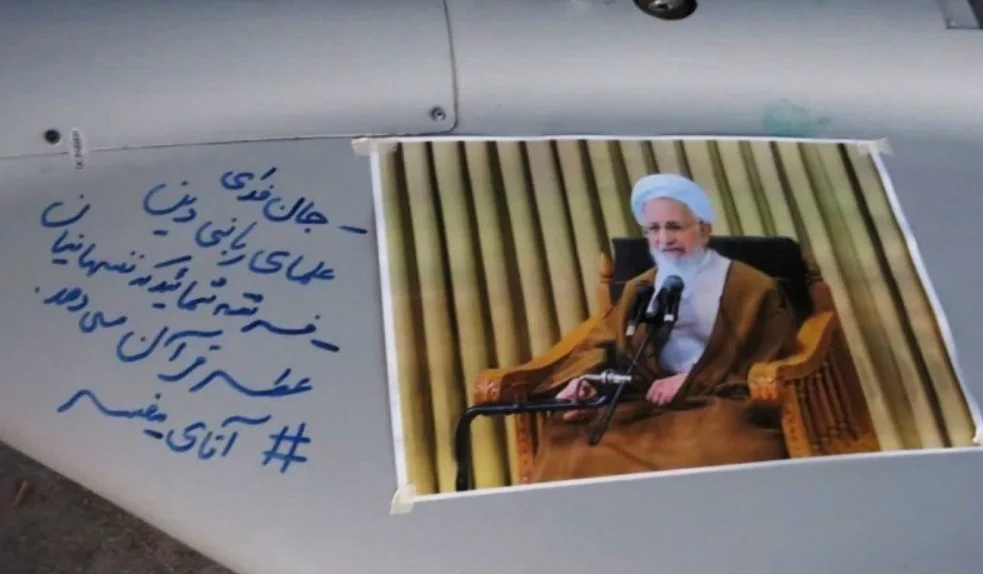 - جان فدای
علمای ربانی دین
- فرشته شمائید که نفسهایتان
عطر قرآن می دهد.
# آقای مفسر